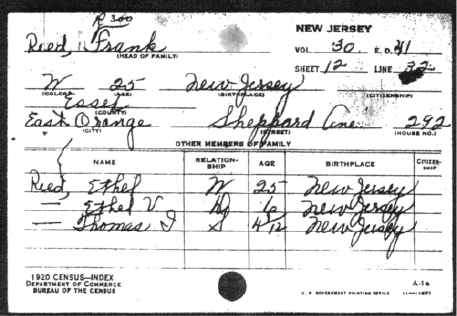 R 300
NEW JERSEY
Reed, Frank
(HEAD OF FAMILY)
VOL. 30 E.D. 41
SHEET 12 LINE 32
W 25 New Jersey
(COLOR) (AGE) (BIRTHPLACE) (CITIZENSHIP)
Essex
(COUNTY)
East Orange Sheppard Ave. 292
(CITY) (STREET) (HOUSE NO.)
OTHER MEMBERS OF FAMILY
NAME RELATION-SHIP AGE BIRTHPLACE CITIZEN-SHIP
Reed, Ethel W 25 New Jersey
— Ethel V. D New Jersey
— Thomas J S 4/12 New Jersey
1920 CENSUS—INDEX
DEPARTMENT OF COMMERCE
BUREAU OF THE CENSUS
A-1a
U. S. GOVERNMENT PRINTING OFFICE